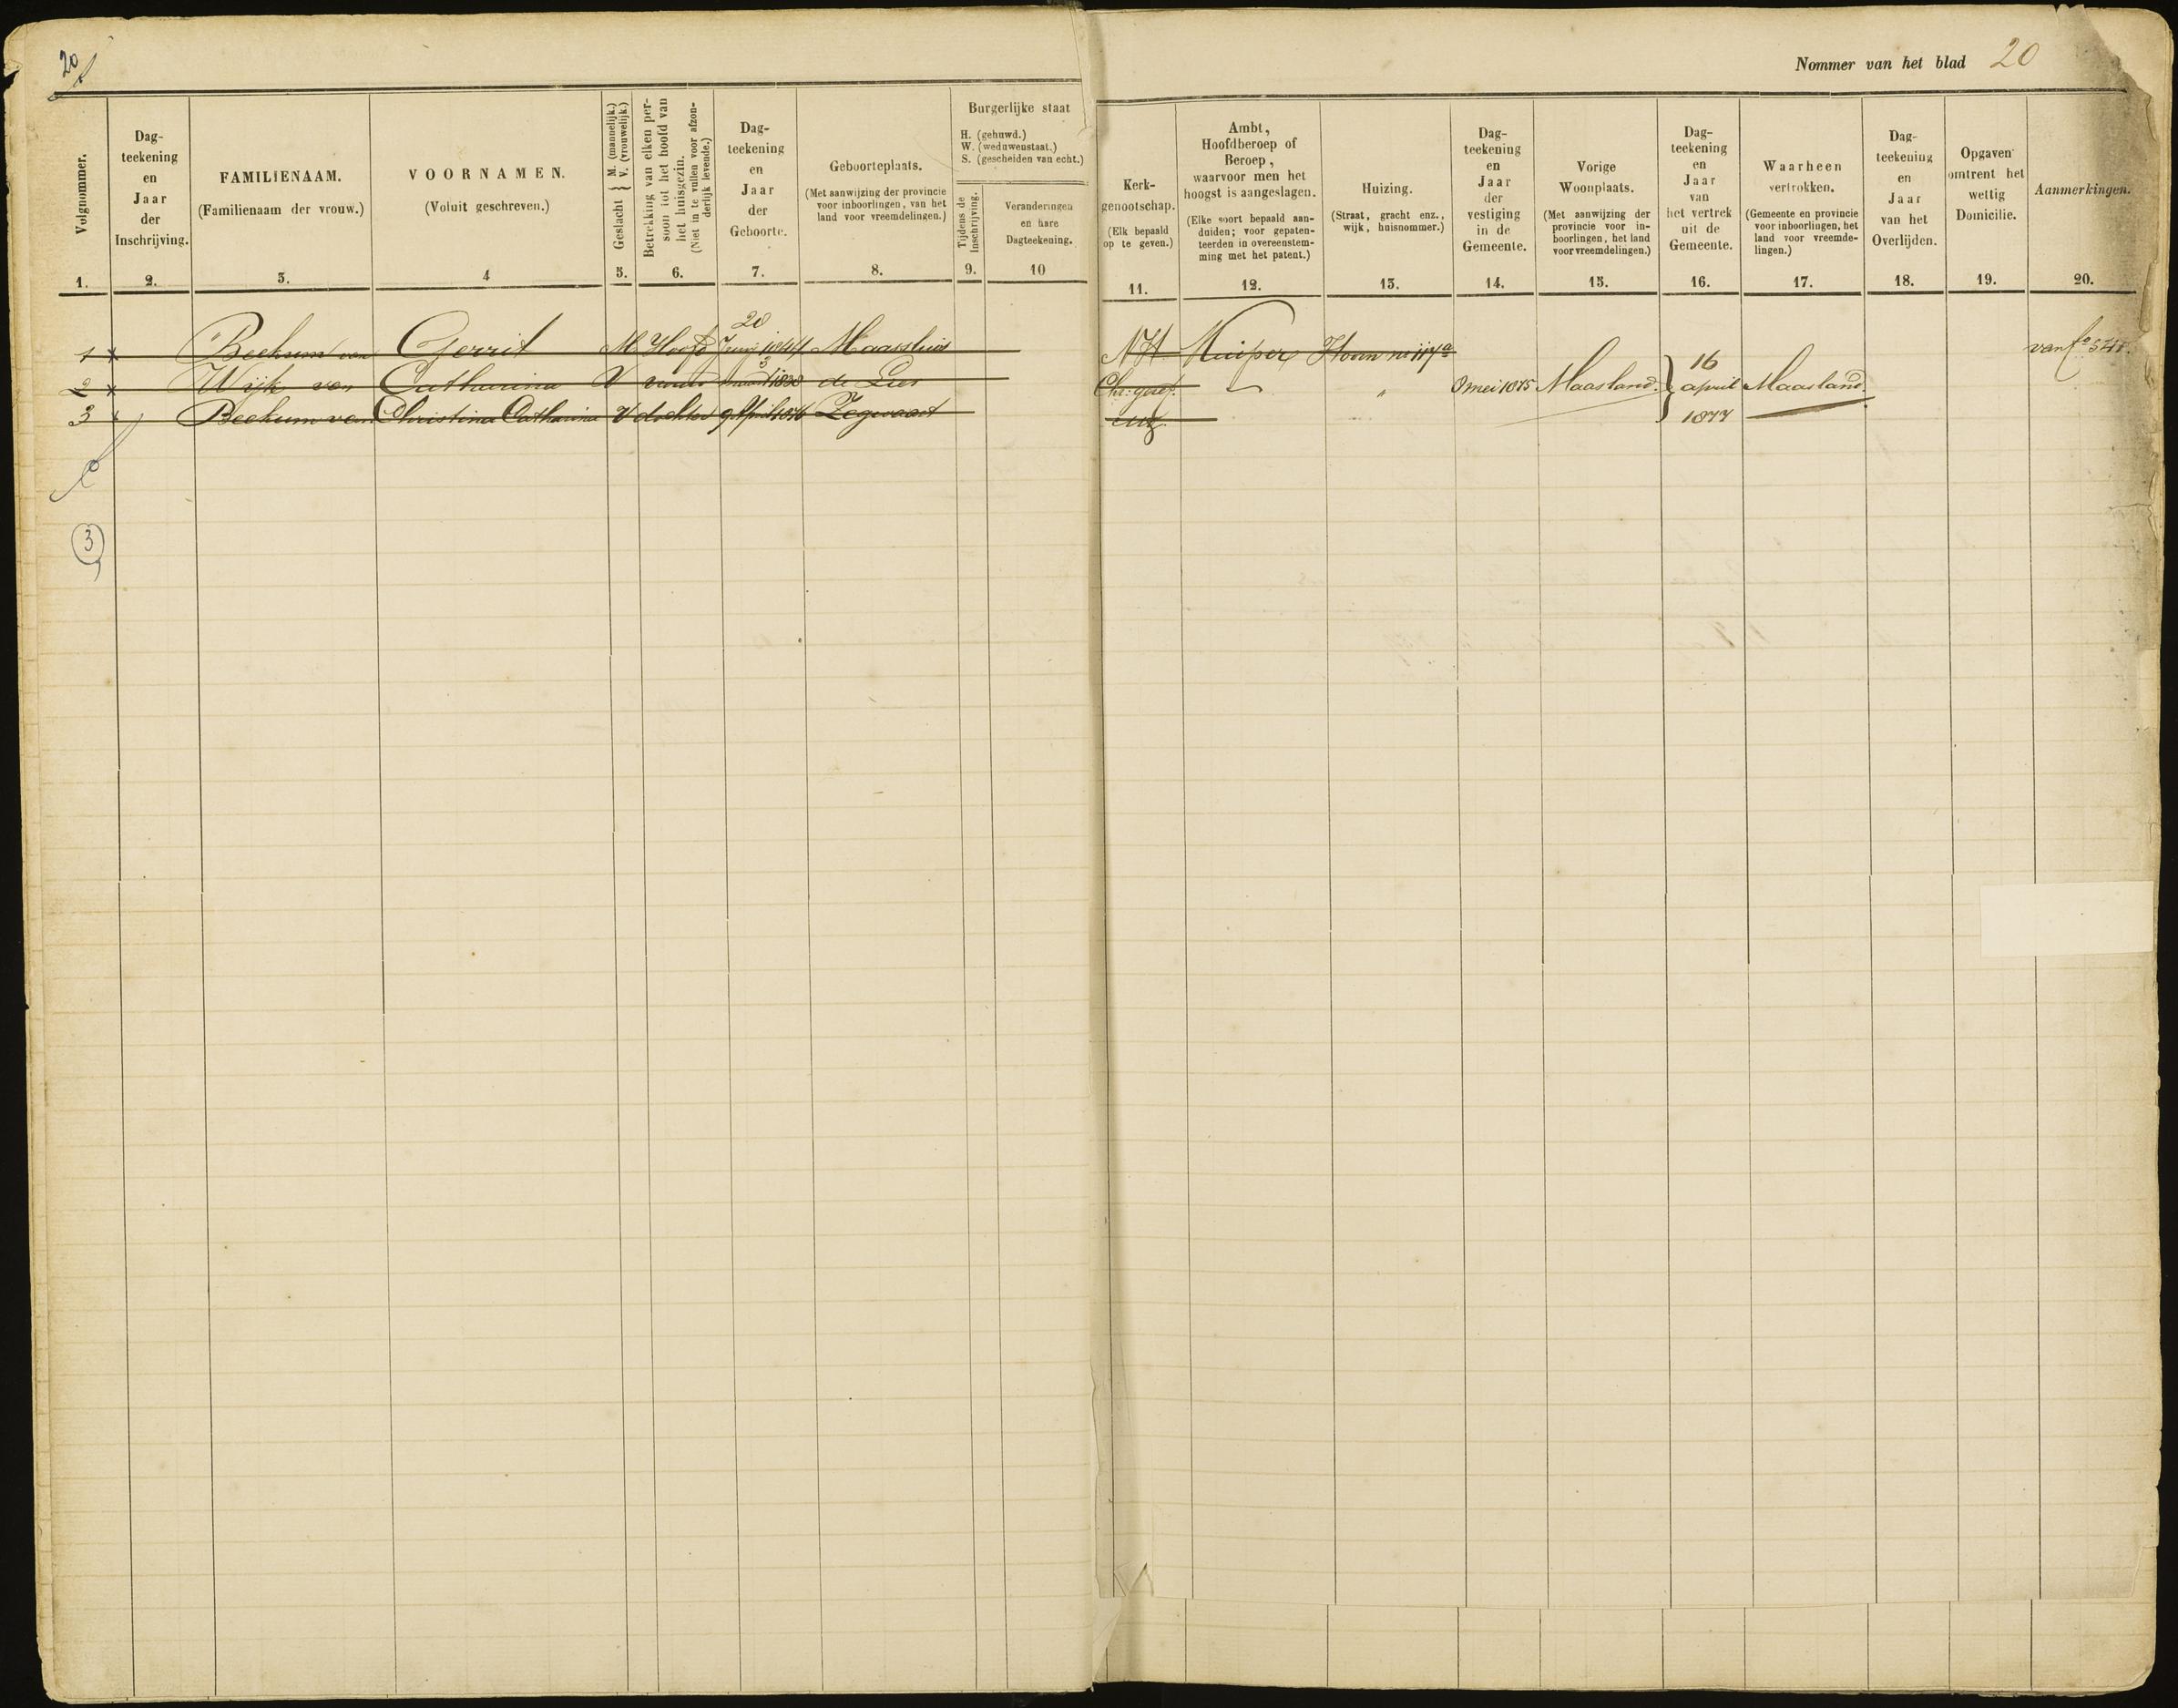 20
Nommer van het blad 20
Volgnommer.
1.
Dag-
teekening
en
Jaar
der
Inschrijving.
2.
FAMILIENAAM.
(Familienaam der vrouw.)
3.
VOORNAMEN.
(Voluit geschreven.)
4
Geslacht { M. (mannelijk.)
V. (vrouwelijk.)
5.
Betrekking van elken per-
soon tot het hoofd van
het huisgezin.
(Niet in te vullen voor afzon-
derlijk levende.)
6.
Dag-
teekening
en
Jaar
der
Geboorte.
7.
Geboorteplaats.
(Met aanwijzing der provincie
voor inboorlingen, van het
land voor vreemdelingen.)
8.
Burgerlijke staat
H. (gehuwd.)
W. (weduwenstaat.)
S. (gescheiden van echt.)
Tijdens de
Inschrijving.
9.
Veranderingen
en hare
Dagteekening.
10
Kerk-
genootschap.
(Elk bepaald
op te geven.)
11.
Ambt,
Hoofdberoep of
Beroep,
waarvoor men het
hoogst is aangeslagen.
(Elke soort bepaald aan-
duiden; voor gepaten-
teerden in overeenstem-
ming met het patent.)
12.
Huizing.
(Straat, gracht enz.,
wijk, huisnommer.)
13.
Dag-
teekening
en
Jaar
der
vestiging
in de
Gemeente.
14.
Vorige
Woonplaats.
(Met aanwijzing der
provincie voor in-
boorlingen, het land
voor vreemdelingen.)
15.
Dag-
teekening
en
Jaar
van
het vertrek
uit de
Gemeente.
16.
Waarheen
vertrokken.
(Gemeente en provincie
voor inboorlingen, het
land voor vreemde-
lingen.)
17.
Dag-
teekening
en
Jaar
van het
Overlijden.
18.
Opgaven
omtrent het
wettig
Domicilie.
19.
Aanmerkingen.
20.
1 x Beekum van Gerrit M Hoofd 20 Junij 1844 Maassluis NH Kuiper
2 x Wijk van Catharina V vrouw de Lier Chr: geref. " 8 mei 1875 Maasland. } 16 april 1877 Maasland.
3 x Beekum van Christina Catharina V dochter 9 April 1876 Zegwaart
3